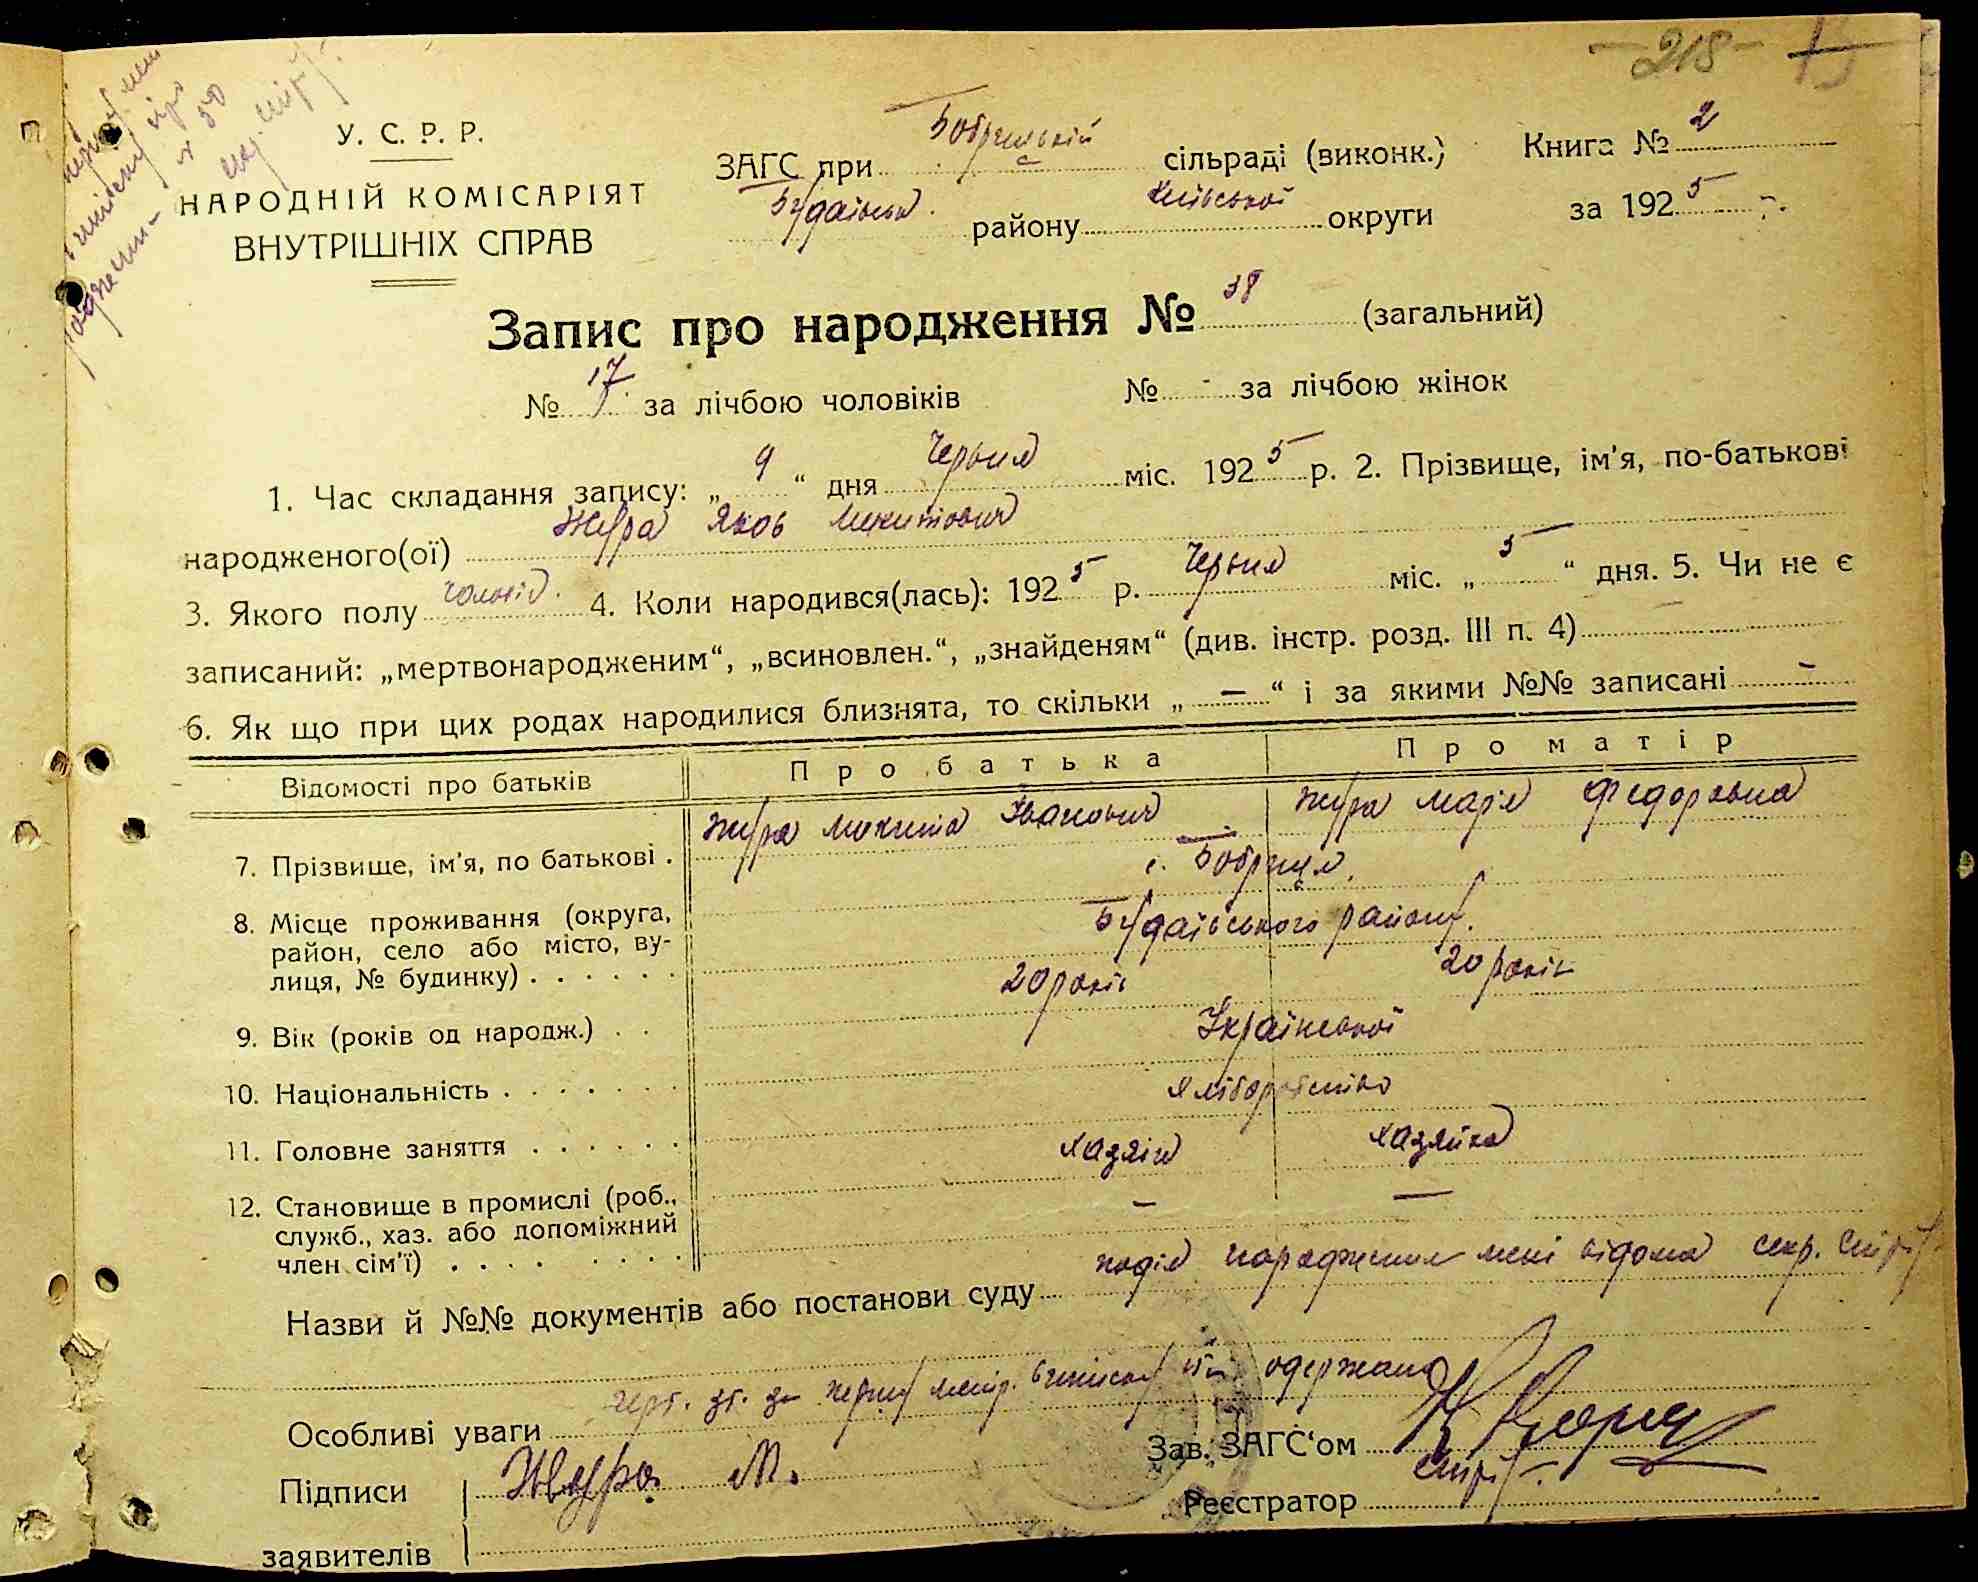 - 218 -
У. С. Р. Р.
НАРОДНІЙ КОМІСАРІЯТ
ВНУТРІШНІХ СПРАВ
ЗАГС при Бобрицькій сільраді (виконк.) Книга № 2
Будаївськ. району Київської округи за 1925 р.
Запис про народження № 38 (загальний)
№ 17 за лічбою чоловіків № - за лічбою жінок
1. Час складання запису: „ 9 “ дня Червня міс. 1925 р. 2. Прізвище, ім'я, по-батькові
народженого(ої) Жура Яков Микитович
3. Якого полу чоловіч. 4. Коли народився(лась): 1925 р. Червня міс. „ 5 “ дня. 5. Чи не є
записаний: „мертвонародженим“, „всиновлен.“, „знайденям“ (див. інстр. розд. III п. 4)
6. Як що при цих родах народилися близнята, то скільки „ — “ і за якими №№ записані -
Відомості про батьків Про батька Про матір
7. Прізвище, ім'я, по батькові . Жура Микита Іванович Жура Марія Федоровна
8. Місце проживання (округа, с. Бобриця.
район, село або місто, ву- Будаївського району.
лиця, № будинку) . . . . . .
9. Вік (років од народж.) . . 20 років 20 років
10. Національність . . . . . . . Української
11. Головне заняття . . . . . . хліборобство
12. Становище в промислі (роб., хазяін хазяйка
служб., хаз. або допоміжний — —
член сім'ї) . . . . . . . .
Назви й №№ документів або постанови суду подія народження мені відома секр.
Особливі уваги одержано
Підписи Жура М. Зав. ЗАГС'ом
заявителів Реєстратор